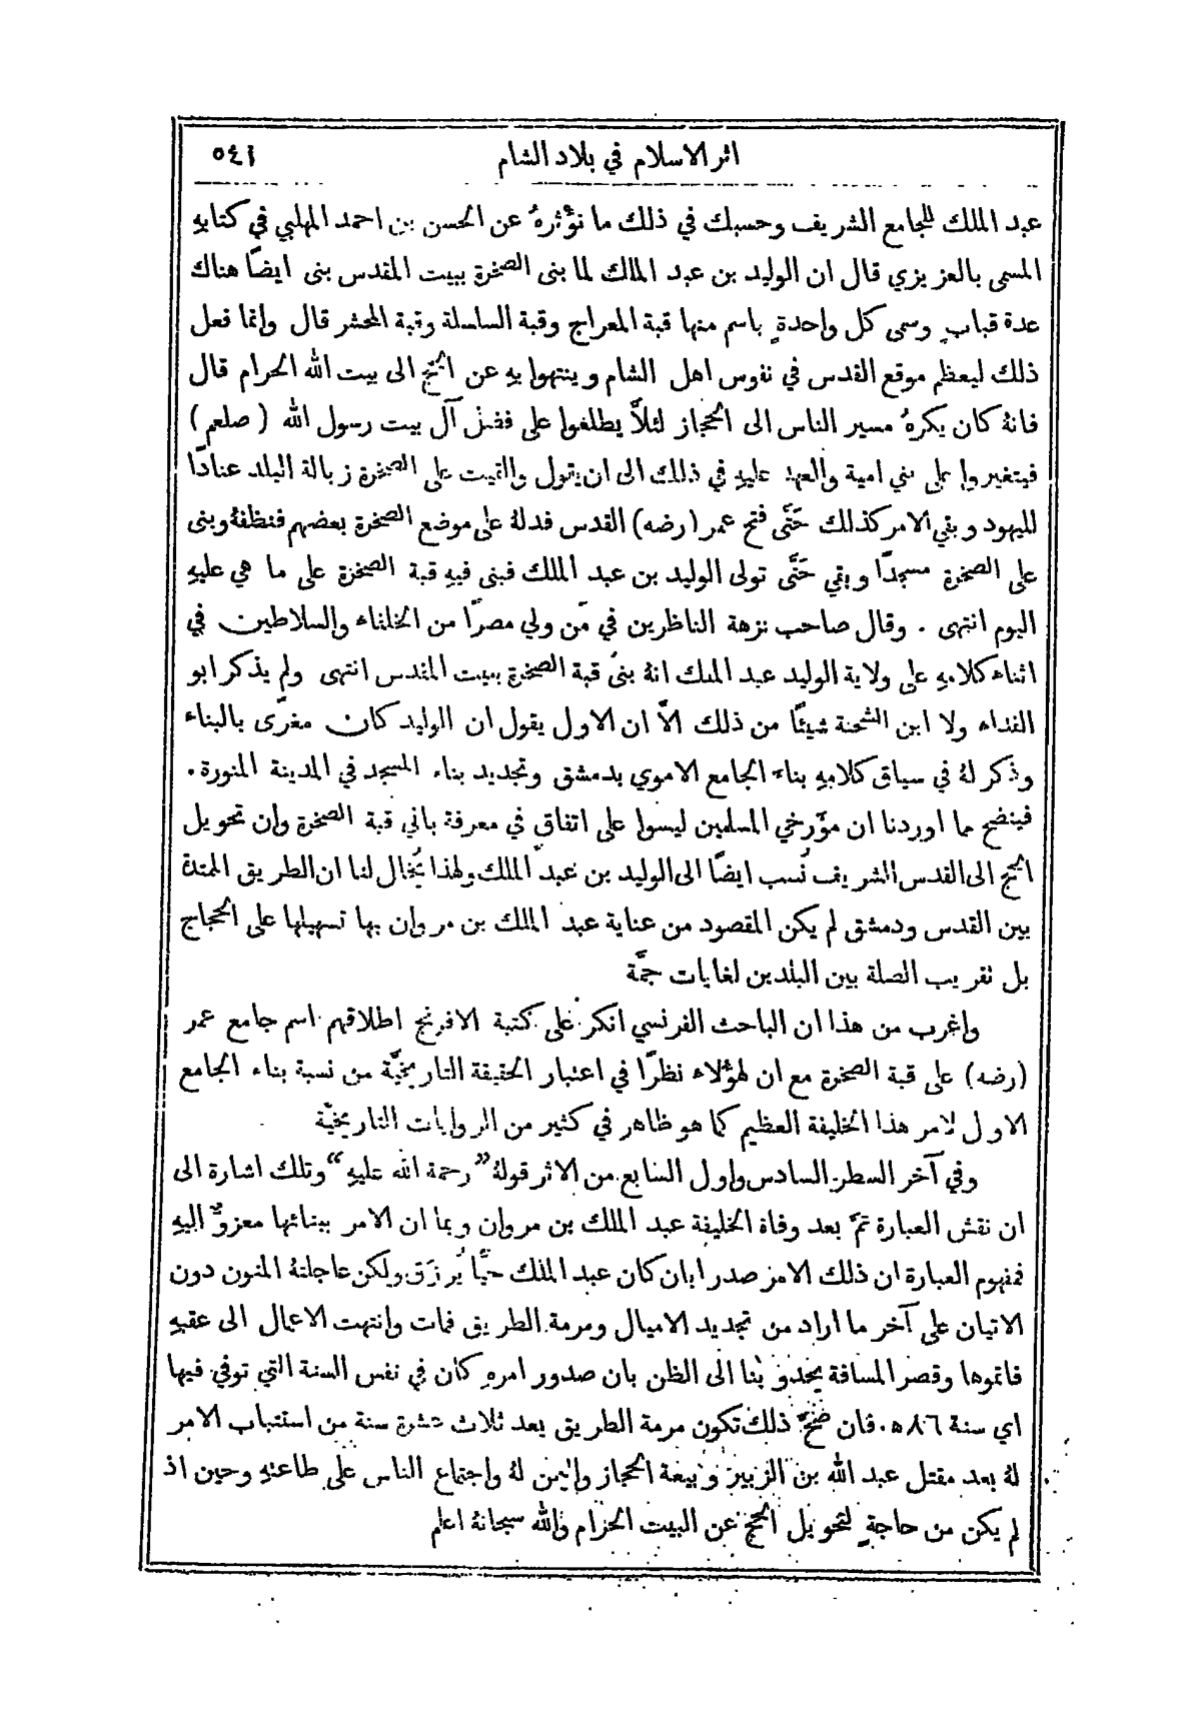 اثر الاسلام في بلاد الشام
٥٤١
عبد الملك للجامع الشريف وحسبك في ذلك ما نؤْثرهُ عن الحسن بن احمد المهلبي في كتابهِ
المسمى بالعزيزي قال ان الوليد بن عبد الملك لما بنى الصخرة ببيت المقدس بنى ايضًا هناك
عدة قبابٍ وسمى كل واحدةٍ باسم منها قبة المعراج وقبة السلسلة وقبة المحشر قال وانما فعل
ذلك ليعظم موقع القدس في نفوس اهل الشام وينتهوا بهِ عن الحج الى بيت الله الحرام قال
فانهُ كان يكرهُ مسير الناس الى الحجاز لئلاَّ يطلعوا على فضل آل بيت رسول الله (صلعم)
فيتغيروا على بني امية والعهدة عليهِ في ذلك الى ان يقول والقيت على الصخرة زبالة البلد عنادًا
لليهود وبقي الامر كذلك حَتَّى فتح عمر (رضه) القدس فدلهُ على موضع الصخرة بعضهم فنظفهُ وبنى
على الصخرة مسجدًا وبقي حَتَّى تولى الوليد بن عبد الملك فبنى فيهِ قبة الصخرة على ما هي عليهِ
اليوم انتهى . وقال صاحب نزهة الناظرين في مَن ولي مصرًا من الخلفاء والسلاطين في
اثناء كلامهِ على ولاية الوليد عبد الملك انهُ بنى قبة الصخرة ببيت المقدس انتهى ولم يذكر ابو
الفداء ولا ابن الشحنة شيئًا من ذلك الاَّ ان الاول يقول ان الوليد كان مغرًى بالبناء
وذكر لهُ في سياق كلامهِ بناء الجامع الاموي بدمشق وتجديد بناء المسجد في المدينة المنورة.
فيتضح مما اوردنا ان مؤَرخي المسلمين ليسوا على اتفاقٍ في معرفة باني قبة الصخرة وان تحويل
الحج الى القدس الشريف نُسب ايضًا الى الوليد بن عبد الملك ولهذا يُخال لنا ان الطريق الممتدة
بين القدس ودمشق لم يكن المقصود من عناية عبد الملك بن مروان بها تسهيلها على الحجاج
بل تقريب الصلة بين البلدين لغايات جمَّة
واغرب من هذا ان الباحث الفرنسي انكر على كتبة الافرنج اطلاقهم اسم جامع عمر
(رضه) على قبة الصخرة مع ان لهؤُلاء نظرًا في اعتبار الحقيقة التاريخيَّة من نسبة بناء الجامع
الاول لامر هذا الخليفة العظيم كما هو ظاهر في كثير من الروايات التاريخيَّة
وفي آخر السطر السادس واول السابع من الاثر قولهُ ”رحمة الله عليهِ“ وتلك اشارة الى
ان نقش العبارة تمَّ بعد وفاة الخليفة عبد الملك بن مروان وبما ان الامر ببنائها معزوٌّ اليهِ
فمفهوم العبارة ان ذلك الامر صدر ابان كان عبد الملك حيًّا يُرزَق ولكن عاجلتهُ المنون دون
الاتيان على آخر ما اراد من تجديد الاميال ومرمة الطريق فمات وانتهت الاعمال الى عقبهِ
فاتموها وقصر المسافة يحدو بنا الى الظن بان صدور امرهِ كان في نفس السنة التي توفي فيها
اي سنة ٨٦ ه. فان صحَّ ذلك تكون مرمة الطريق بعد ثلاث عشرة سنة من استتباب الامر
لهُ بعد مقتل عبد الله بن الزبير وبيعة الحجاز واليمن لهُ واجتماع الناس على طاعتهِ وحين اذ
لم يكن من حاجةٍ لتحويل الحج عن البيت الحرام والله سبحانهُ اعلم